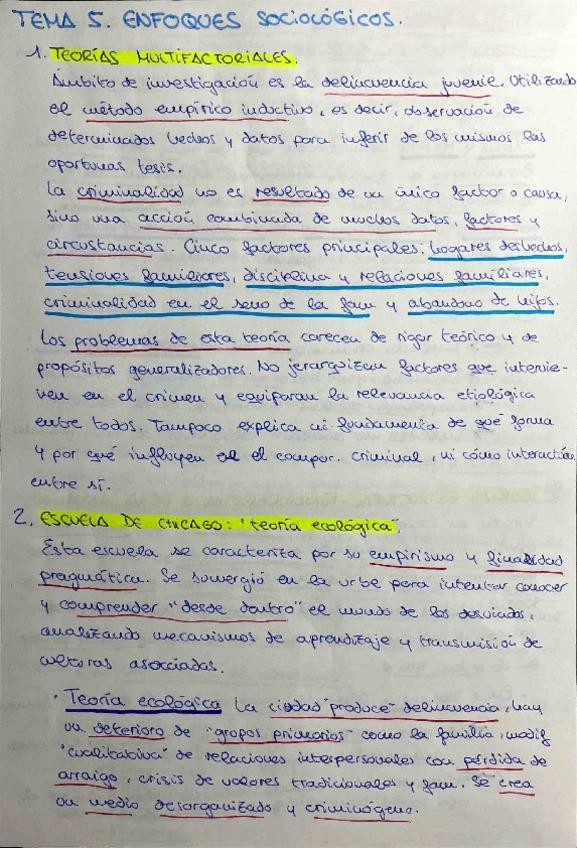 TEMA 5. ENFOQUES SOCIOLÓGICOS.
1. TEORÍAS MULTIFACTORIALES.
Ámbito de investigación es la delincuencia juvenil. Utilizando
el método empírico inductivo, es decir, observación de
determinados hechos y datos para inferir de los mismos las
oportunas tesis.
La criminalidad no es resultado de un único factor o causa,
sino una acción combinada de muchos datos, factores y
circustancias. Cinco factores principales: hogares deshechos,
tensiones familiares, disciplina y relaciones familiares,
criminalidad en el seno de la fam y abandono de hijos.
Los problemas de esta teoría carecen de rigor teórico y de
propósitos generalizadores. No jerarquizan factores que intervie-
nen en el crimen y equiparan la relevancia etiológica
entre todos. Tampoco explica ni fundamenta de qué forma
y por qué influyen en el compor. criminal, ni cómo interactúan
entre sí.
2. ESCUELA DE CHICAGO: "teoría ecológica".
Esta escuela se caracteriza por su empirismo y finalidad
pragmática. Se sumergió en la urbe para intentar conocer
y comprender "desde dentro" el mundo de los desviados,
analizando mecanismos de aprendizaje y transmisión de
culturas asociadas.
· Teoría ecológica La ciudad "produce" delincuencia, hay
un deterioro de "grupos primarios" como la familia, modif
"cualitativa" de relaciones interpersonales con pérdida de
arraigo, crisis de valores tradicionales y fam. Se crea
un medio desorganizado y criminógeno.